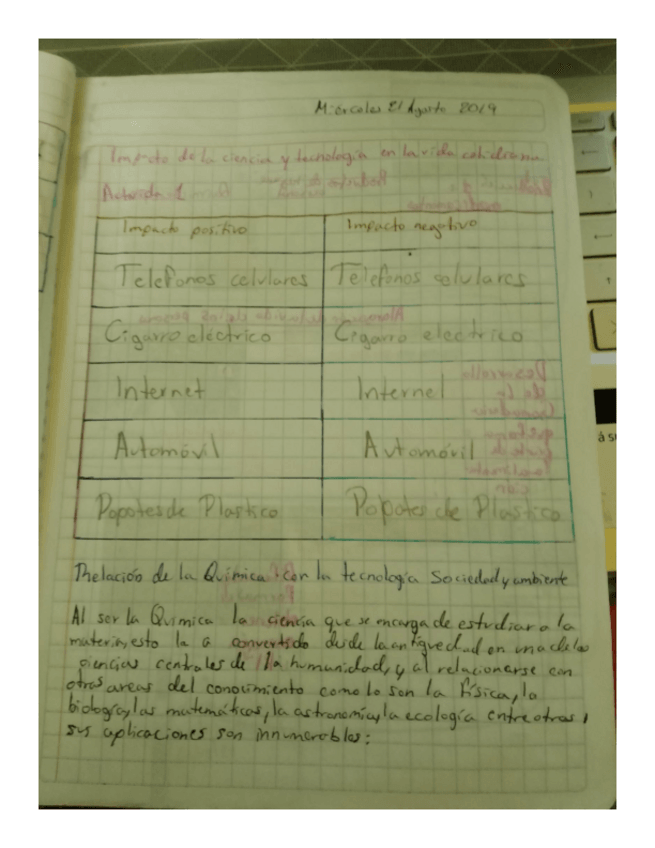 Miércoles 21 Agosto 2019
Impacto de la ciencia y tecnología en la vida cotidiana
Actividad 1
Impacto positivo Impacto negativo
Telefonos celulares Telefonos celulares
Cigarro eléctrico Cigarro electrico
Internet Internet
Automóvil Automóvil
Popotes de Plastico Popotes de Plastico
Relación de la Química con la tecnología Sociedad y ambiente
Al ser la Quimica la ciencia que se encarga de estudiar a la
materia, esto la a convertido desde la antiguedad en una de las
ciencias centrales de la humanidad, y al relacionarse con
otras areas del conocimiento como lo son la física, la
biología, las matemáticas, la astronomía, la ecología entre otras,
sus aplicaciones son innumerables: